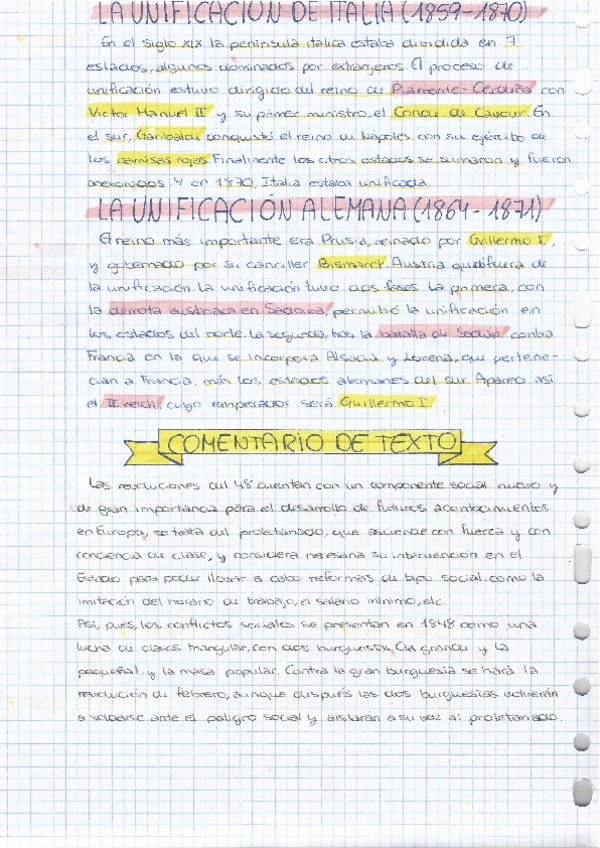 LA UNIFICACIÓN DE ITALIA (1859-1870)
En el siglo XIX la península itálica estaba dividida en 7
estados, algunos dominados por extranjeros. El proceso de
unificación estuvo dirigido del reino de Piamonte-Cerdeña con
Victor Manuel II y su primer ministro, el Conde de Cavour. En
el sur, Garibaldi conquistó el reino de Nápoles con su ejército de
los camisas rojas. Finalmente los otros estados se sumaron y fueron
anexionados. Y en 1870, Italia estaba unificada.
LA UNIFICACIÓN ALEMANA (1864-1871)
El reino más importante era Prusia, reinado por Guillermo I,
y gobernado por su canciller Bismarck. Austria quedó fuera de
la unificación. La unificación tuvo dos fases. La primera, con
la derrota austriaca en Sadowa, permitió la unificación en
los estados del norte. La segunda, tras la batalla de Sedán contra
Francia en la que se incorpora Alsacia y Lorena, que pertene-
cían a Francia, más los estados alemanes del sur. Aparece así
el II reich, cuyo emperador será Guillermo I
COMENTARIO DE TEXTO
Las revoluciones del 48 cuentan con un componente social nuevo y
de gran importancia para el desarrollo de futuros acontecimientos
en Europa, se trata del proletariado, que asciende con fuerza y con
conciencia de clase, y considera necesaria su intervención en el
Estado para poder llevar a cabo reformas de tipo social como la
limitación del horario de trabajo, el salario mínimo, etc.
Así, pues, los conflictos sociales se presentan en 1848 como una
lucha de clases triangular, con dos burguesías, (la grande y la
pequeña), y la masa popular. Contra la gran burguesía se hará la
revolución de febrero, aunque después las dos burguesías volverán
a soldarse ante el peligro social y aislarán a su vez al proletariado.